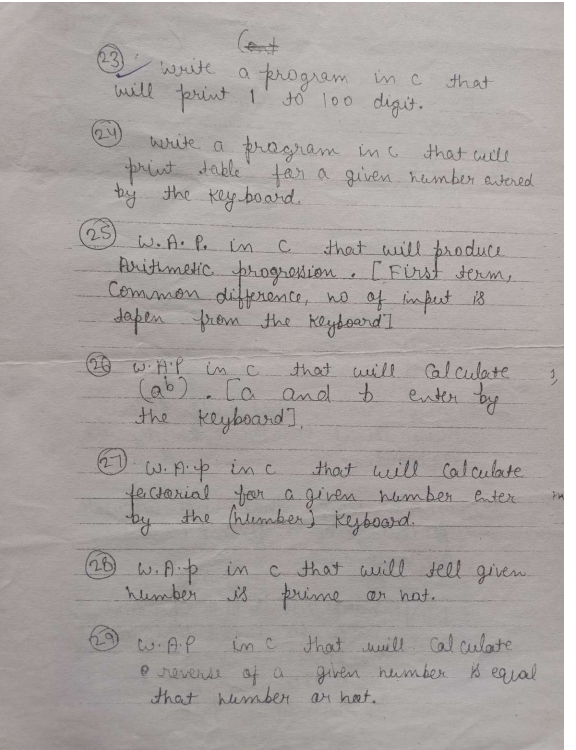 (23) Write a program in c that
will print 1 to 100 digit.
(24) write a program in c that will
print table for a given number entered
by the keyboard.
(25) W.A.P. in C that will produce
Arithmetic progression. [First term,
Common difference, no of input is
tapen from the keyboard]
(26) W.A.P in c that will Calculate
(a^b). [a and b enter by
the keyboard].
(27) W.A.p in c that will Calculate
fectorial for a given number enter
by the (number) keyboard.
(28) W.A.p in c that will tell given
number is prime or not.
(29) W.A.P in c that will Calculate
reverse of a given number is equal
that number or not.